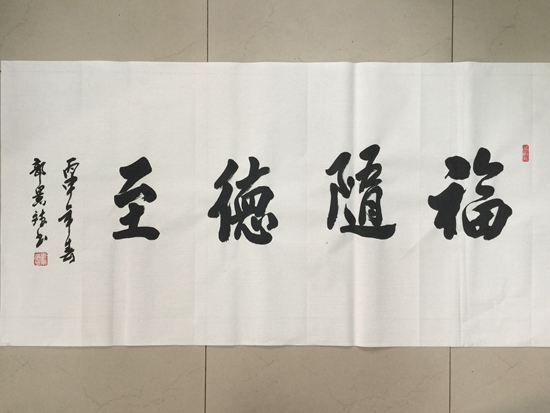 福隨德至
丙申年春
郭貴 書